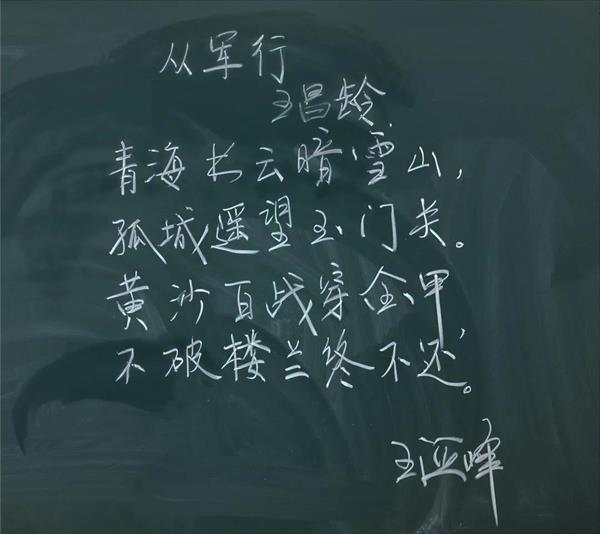 从军行
王昌龄
青海长云暗雪山，
孤城遥望玉门关。
黄沙百战穿金甲，
不破楼兰终不还。
王亚峰